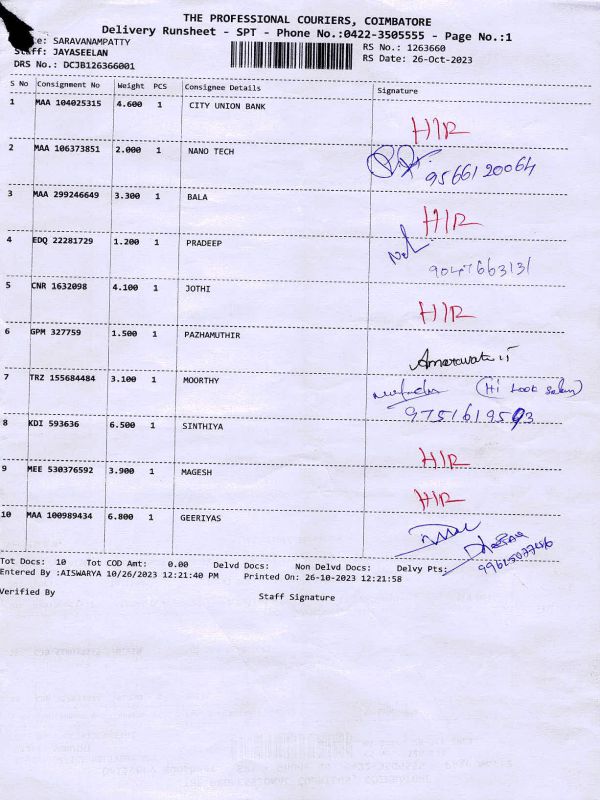 THE PROFESSIONAL COURIERS, COIMBATORE
Delivery Runsheet - SPT - Phone No.:0422-3505555 - Page No.:1
SARAVANAMPATTY RS No.: 1263660
Staff: JAYASEELAN RS Date: 26-Oct-2023
DRS No.: DCJB126366001
S No Consignment No Weight PCS Consignee Details Signature
1 MAA 104025315 4.600 1 CITY UNION BANK
H/R
2 MAA 106373851 2.000 1 NANO TECH
9566120064
3 MAA 299246649 3.300 1 BALA
H/R
4 EDQ 22281729 1.200 1 PRADEEP
9047663131
5 CNR 1632098 4.100 1 JOTHI
H/R
6 GPM 327759 1.500 1 PAZHAMUTHIR
7 TRZ 155684484 3.100 1 MOORTHY
(Hi Look
8 KDI 593636 6.500 1 SINTHIYA
H/R
9 MEE 530376592 3.900 1 MAGESH
H/R
10 MAA 100989434 6.800 1 GEERIYAS
Tot Docs: 10 Tot COD Amt: 0.00 Delvd Docs: Non Delvd Docs: Delvy Pts:
Entered By :AISWARYA 10/26/2023 12:21:40 PM Printed On: 26-10-2023 12:21:58
Verified By Staff Signature